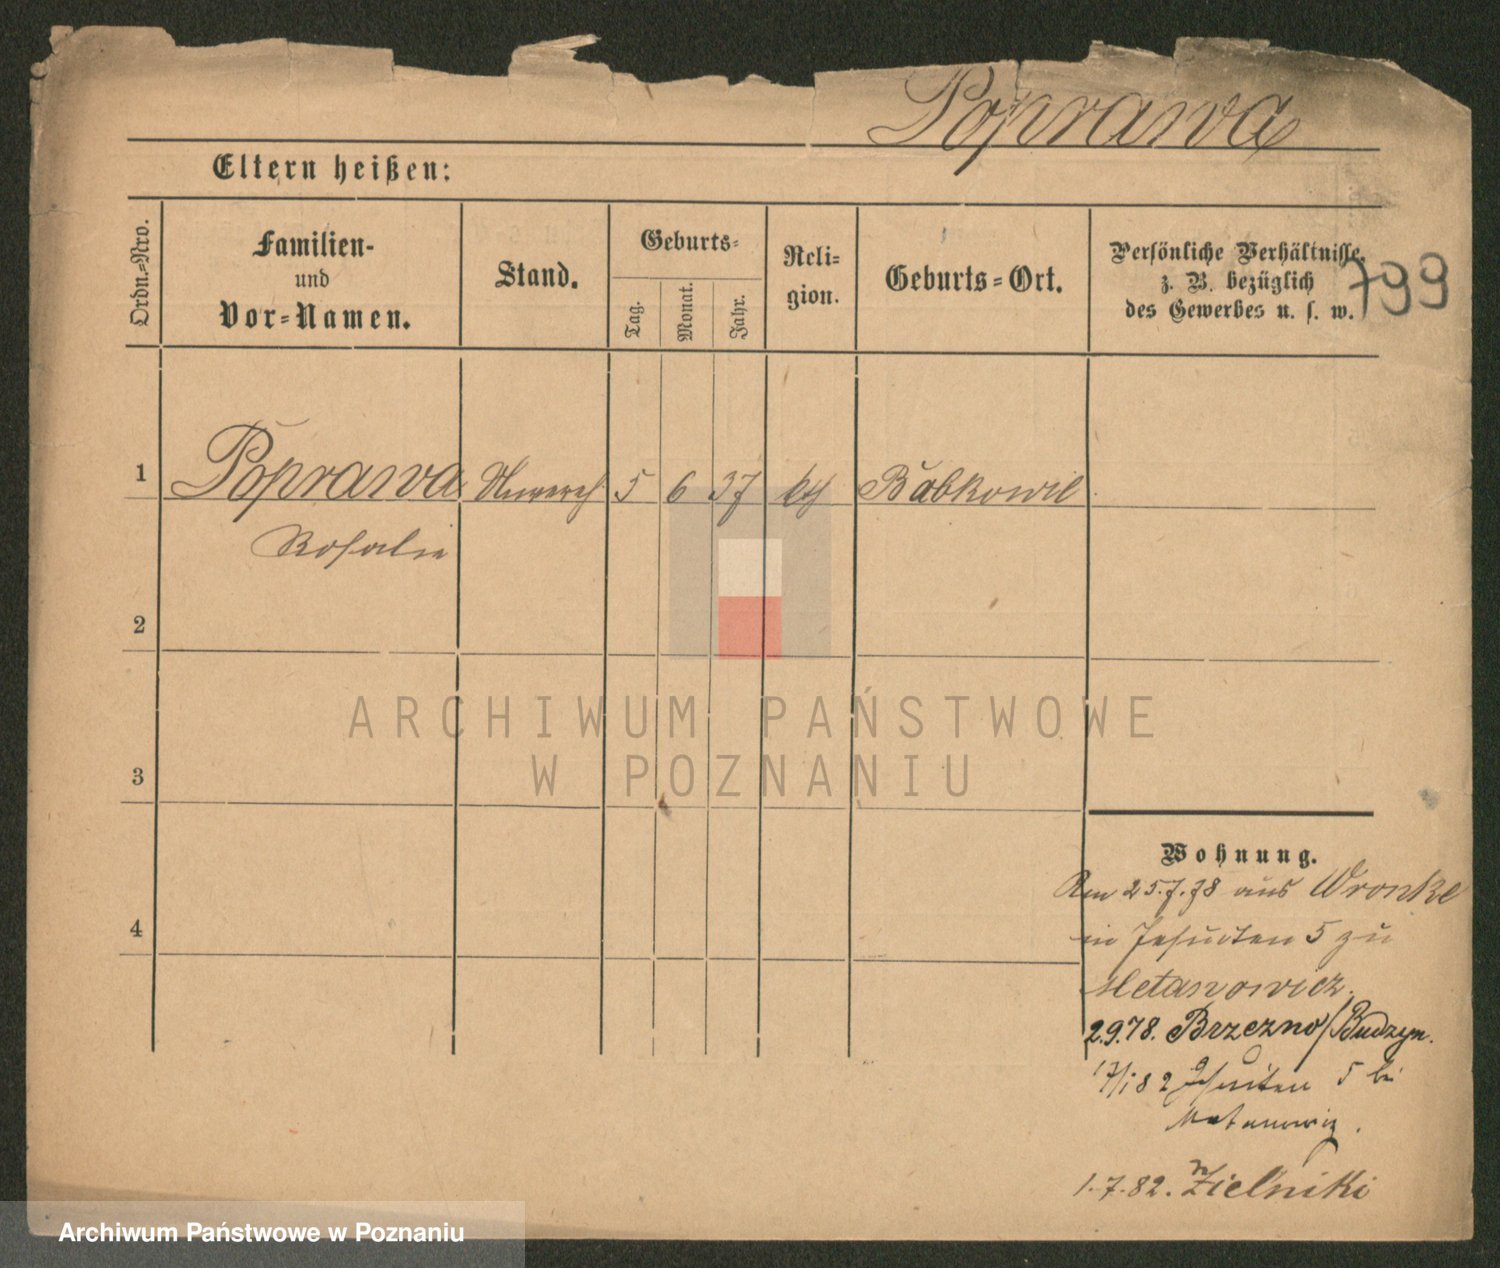 Poprawa
Eltern heißen:
Ordn.=Nro.
Familien-
und
Vor=Namen.
Stand.
Geburts=
Tag.
Monat.
Jahr.
Reli=
gion.
Geburts=Ort.
Persönliche Verhältnisse,
z. B. bezüglich
des Gewerbes u. s. w.
799
1 Poprawa 5 6 37 kth Babkowic
Rosalie
2
ARCHIWUM PAŃSTWOWE
W POZNANIU
3
4
Wohnung.
Am 25.7.78 aus Wronke
in Jesuiten 5 zu
Metanowicz.
2.9.78. Brzezno/Budzyn.
17/1 82 Jesuiten 5 bei
Matanowicz.
1.7.82. n Zielniki
Archiwum Państwowe w Poznaniu